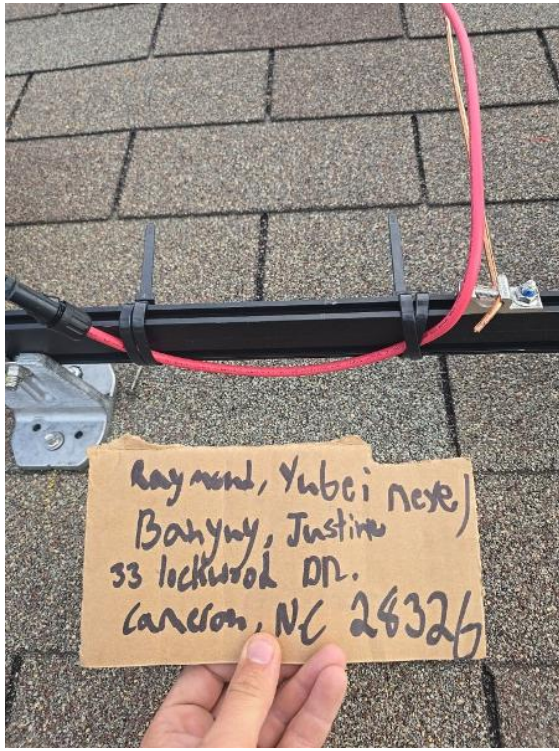 Raymond, Yubei neye)
Banyny, Justine
33 lockwood DR.
Cameron, NC 28326